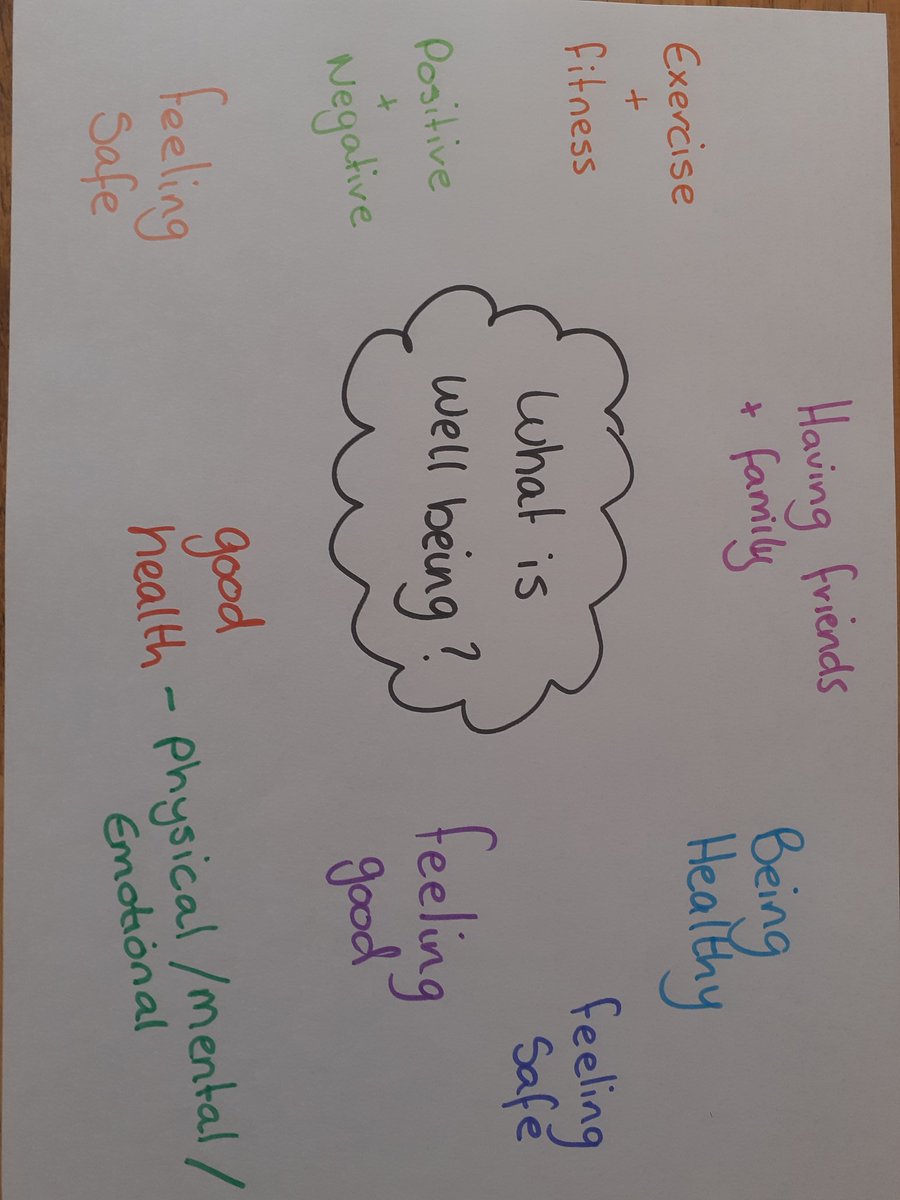 Having friends
+ family
Exercise
+
fitness
Being
Healthy
What is
Well being?
Positive
+
Negative
feeling
Safe
feeling
good
feeling
Safe
good
health - physical/mental/
Emotional